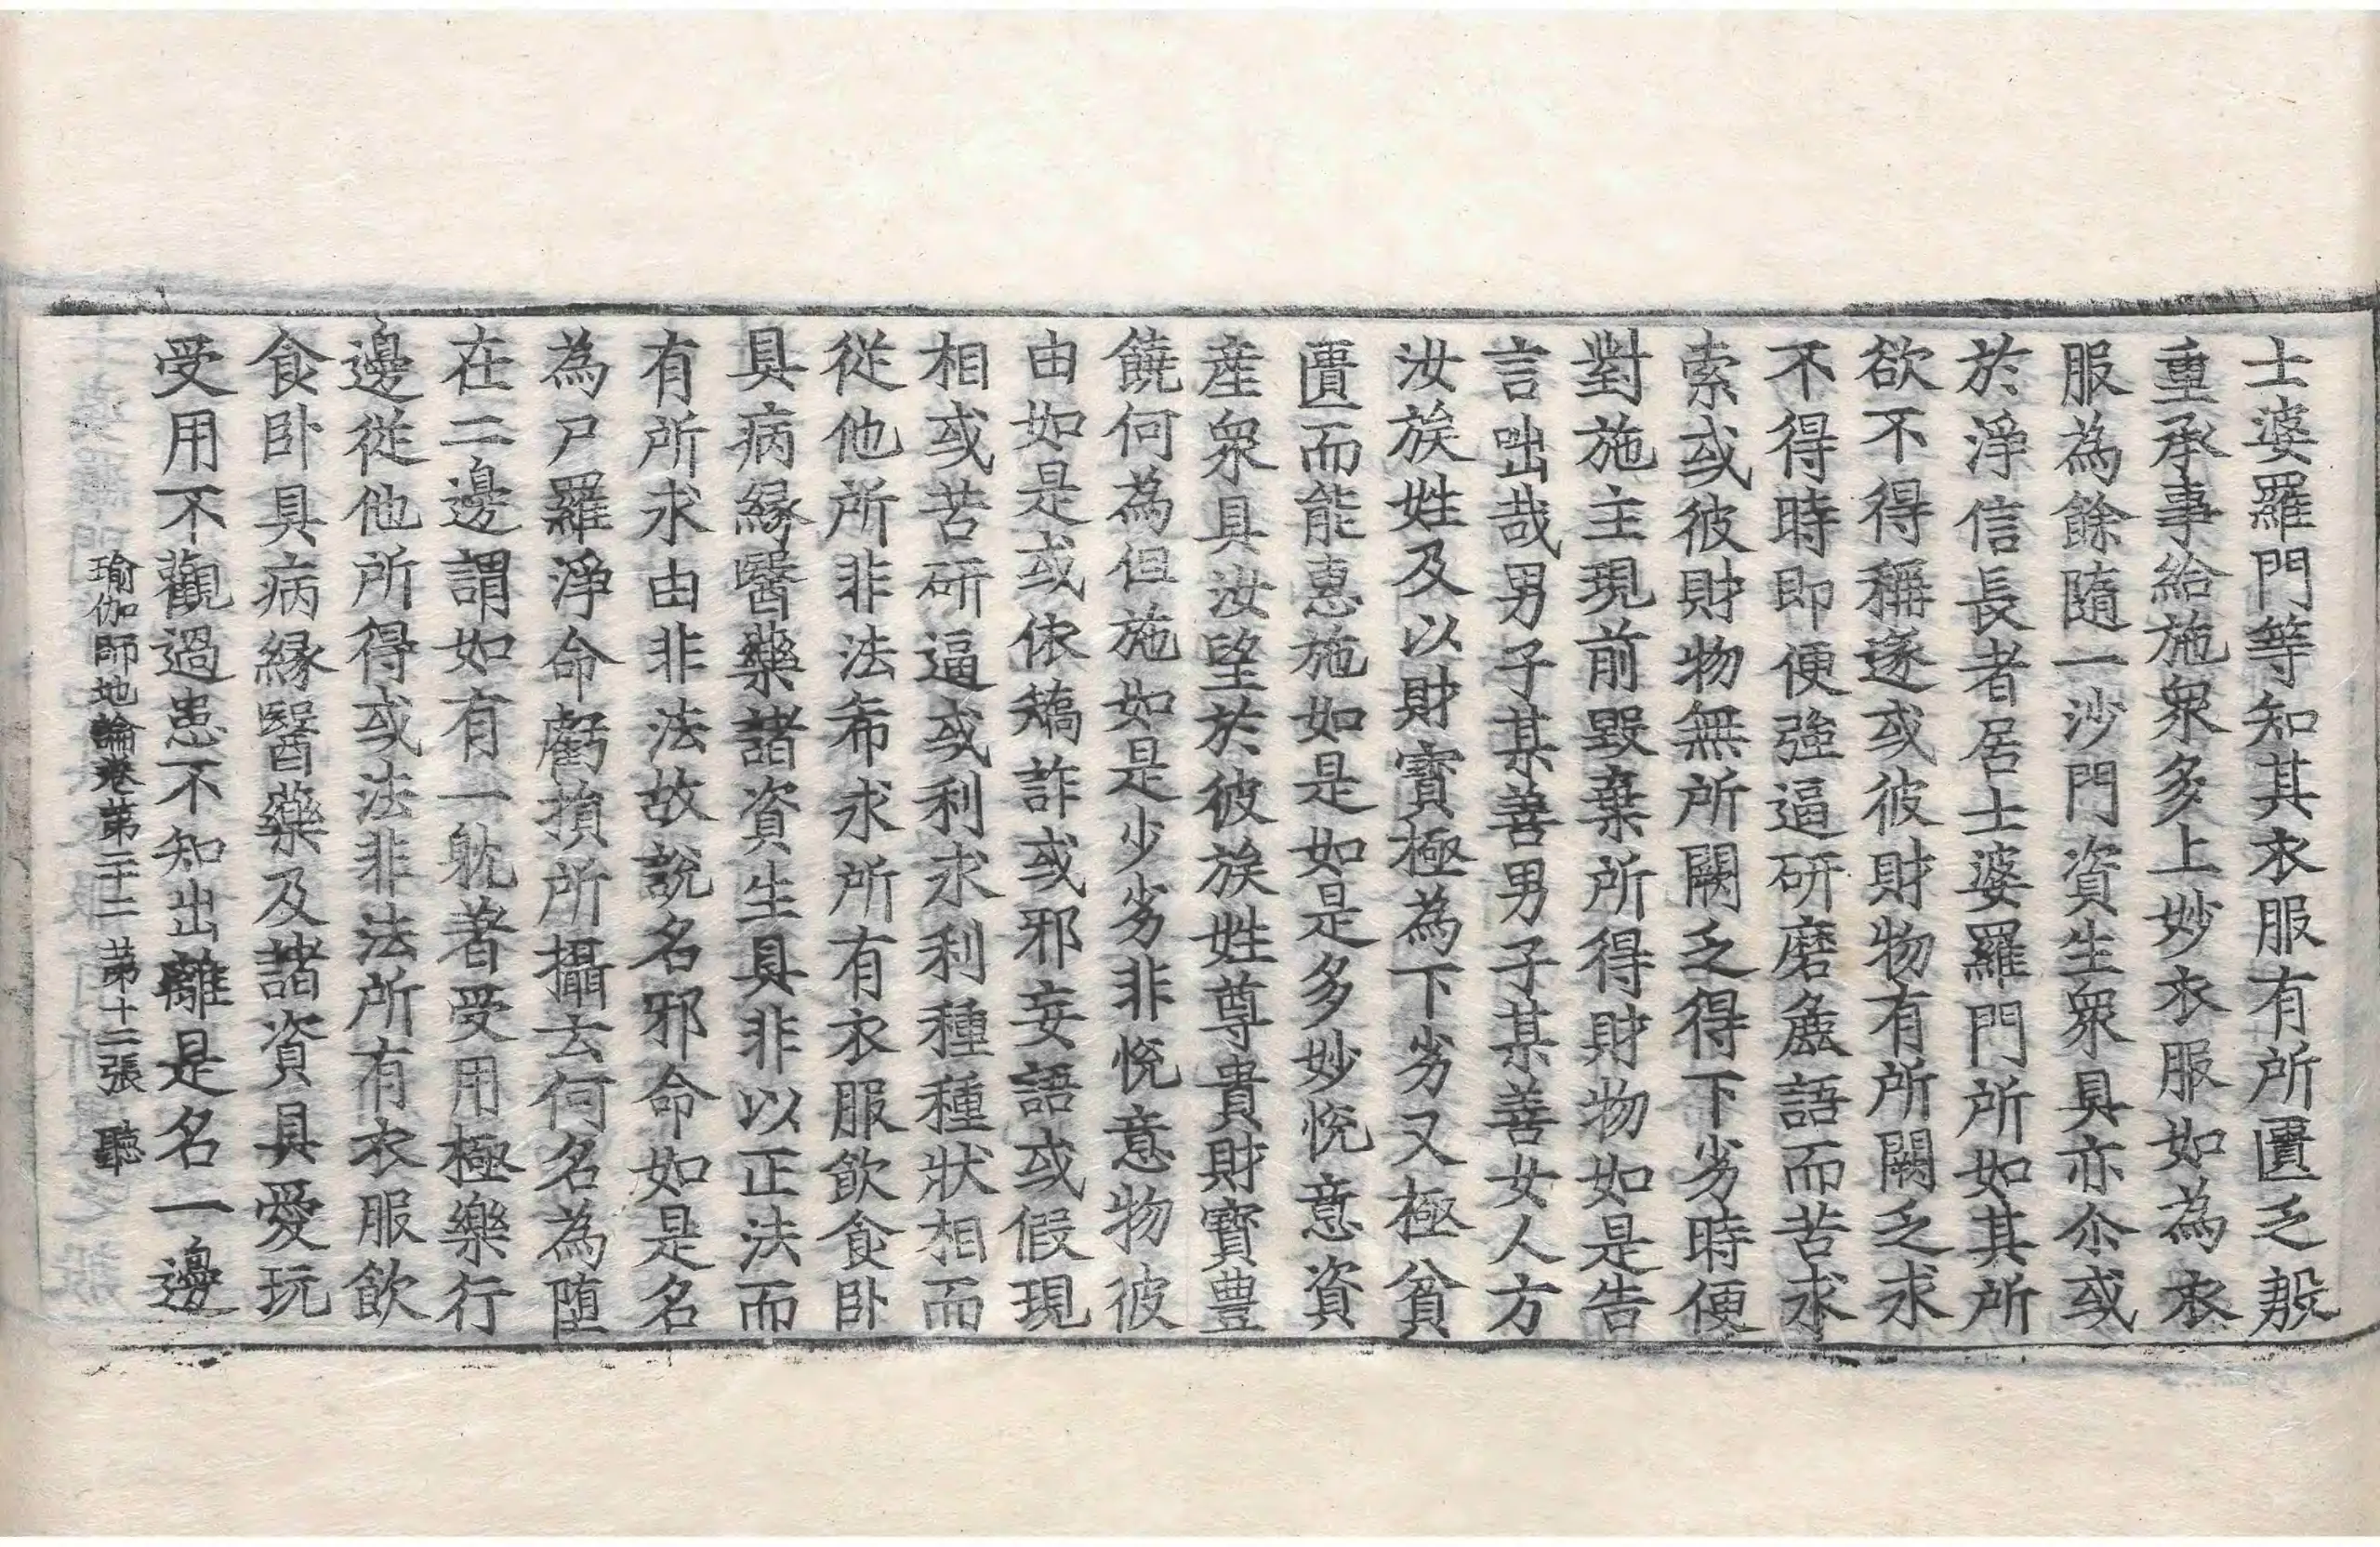 士婆羅門等知其衣服有所匱乏慇
重承事給施衆多上妙衣服如為衣
服為餘隨一沙門資生衆具亦尒或
於淨信長者居士婆羅門所如其所
欲不得稱遂或彼財物有所闕乏求
不得時即便強逼研磨麁語而苦求
索或彼財物無所闕乏得下劣時便
對施主現前毀棄所得財物如是告
言咄哉男子某善男子某善女人方
汝族姓及以財寶極為下劣又極貧
匱而能惠施如是如是多妙悅意資
産衆具汝望於彼族姓尊貴財寶豊
饒何為但施如是少劣非悅意物彼
由如是或依矯詐或邪妄語或假現
相或苦研逼或利求利種種狀相而
從他所非法希求所有衣服飲食卧
具病緣醫藥諸資生具非以正法而
有所求由非法故說名邪命如是名
為尸羅淨命虧損所攝云何名為墮
在二邊謂如有一躭著受用極樂行
邊從他所得或法非法所有衣服飲
食卧具病緣醫藥及諸資具愛玩
受用不觀過患不知出離是名一邊
瑜伽師地論卷第二十二 第十二張 聽